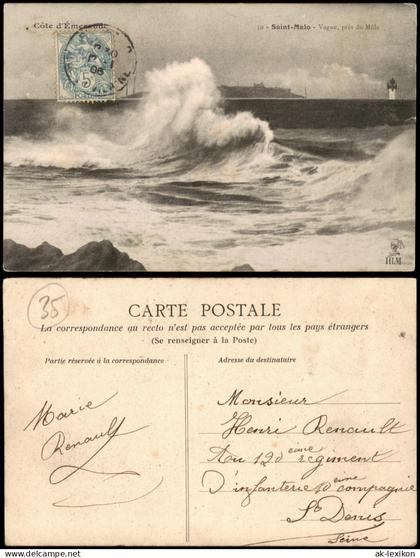 Côte d'Émeraude
10 - Saint-Malo - Vague, près du Môle
5
HLM
35
CARTE POSTALE
La correspondance au recto n'est pas acceptée par tous les pays étrangers
(Se renseigner à la Poste)
Partie réservée à la correspondance
Adresse du destinataire
Marie
Renault
Monsieur
Henri Renault
Au 120 eime régiment
D'infanterie 10 eime compagnie
St Denis
Seine
www.delcampe.net
ak-lexikon